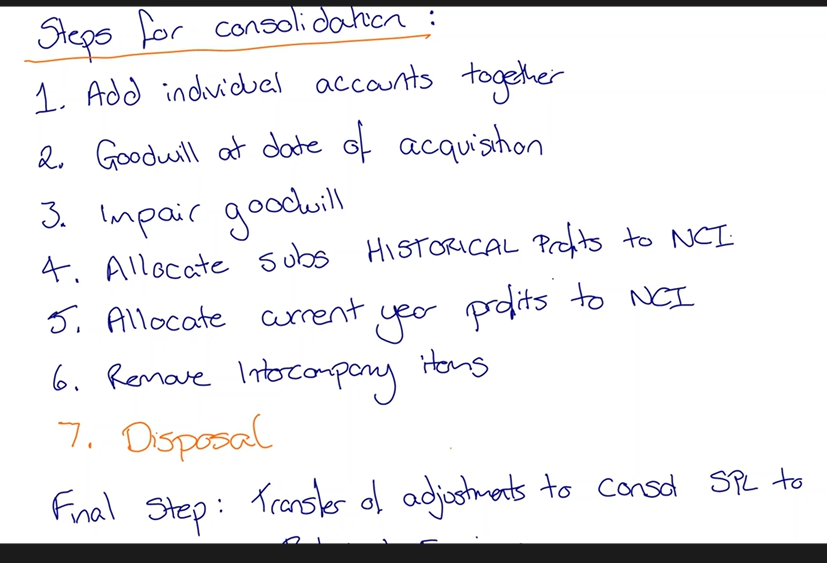 Steps for consolidation :
1. Add individual accounts together
2. Goodwill at date of acquisition
3. Impair goodwill
4. Allocate subs HISTORICAL Profits to NCI
5. Allocate current year profits to NCI
6. Remove Intercompany items
7. Disposal
Final Step : Transfer of adjustments to consol SPL to